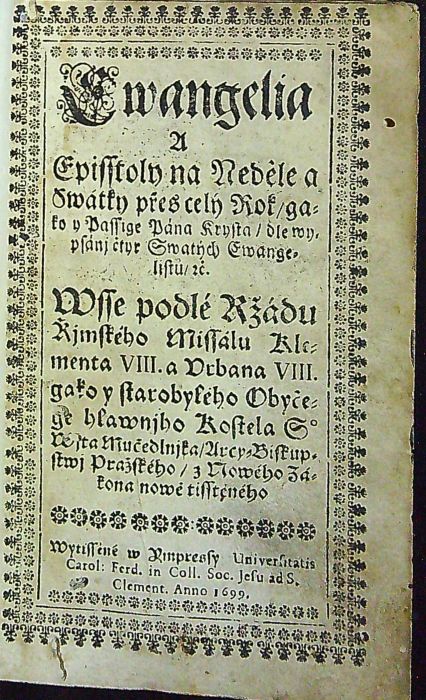 Ewangelia
A
Episstoly na Neděle a
Swátky přes celý Rok/ga-
ko y Passige Pána Krysta/ dle wy-
psánj čtyr Swatých Ewange-
listů/ ꝛč.
Wsse podlé Ržádu
Ržjmského Missálu Kle-
menta VIII. a Vrbana VIII.
gako y starobylého Obyče-
ge hlawnjho Kostela S°
Wjta Mučedlnjka/Arcy-Biskup-
stwj Pražského/ z Nowého Zá-
kona nowě tisstěného
Wytisstěné w Ympressy Universitatis
Carol: Ferd. in Coll. Soc. Jesu ad S.
Clement. Anno 1699.